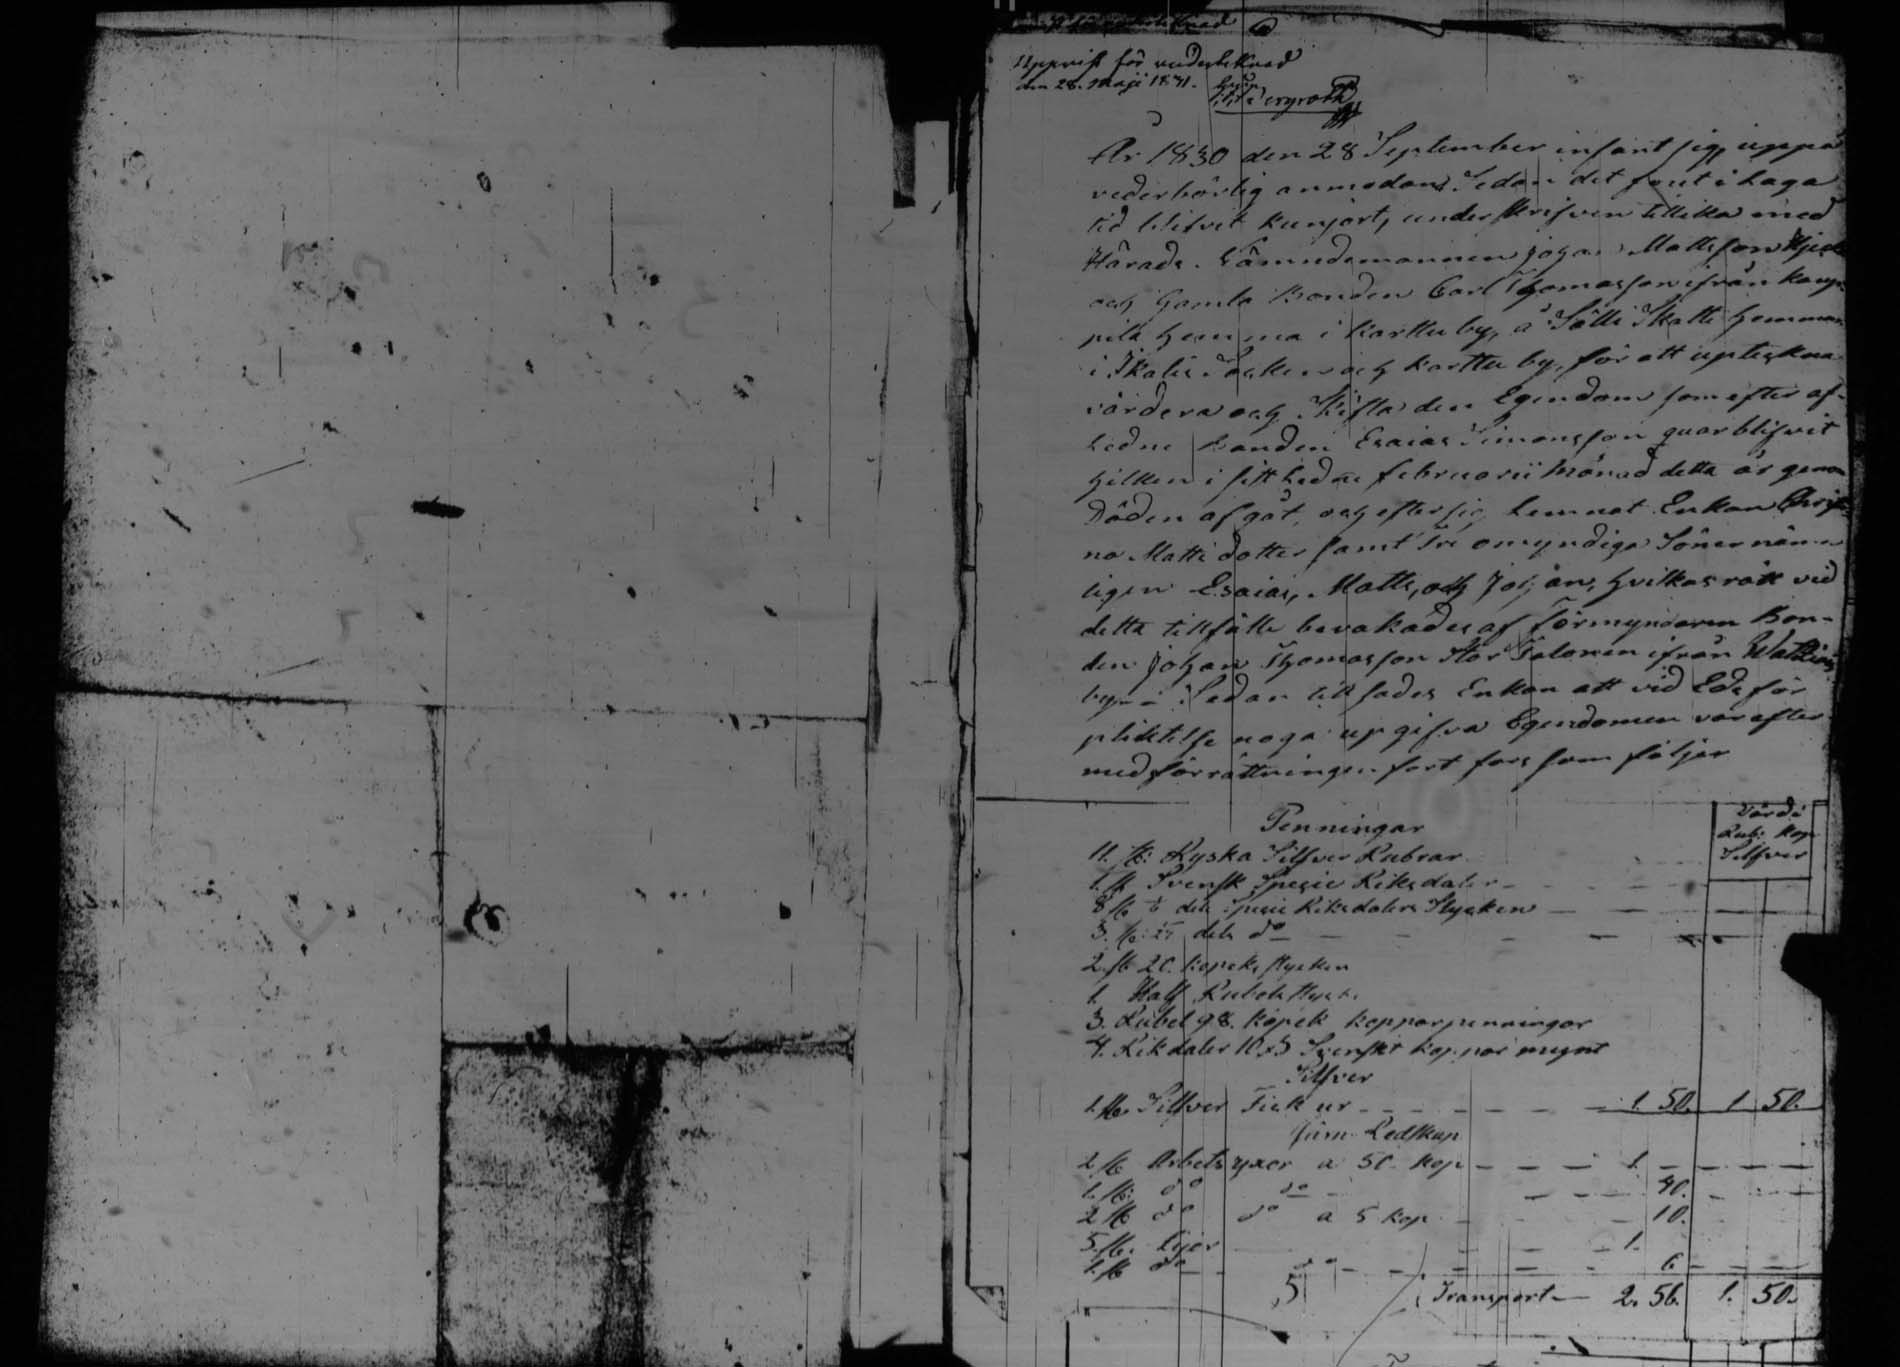 Uppvist för underteknad
den 28. Maji 1831.
År 1830 den 28 September infant sig, uppå
vederbörlig anmodan, Sedan det förut i Laga
tid blifvit kunjort, underskrifven tillika med
Härads Nämndemannen Johan Mattsson
och Gamla Bonden Carl Thomasson ifrån
hemma i Karttu by, å Sälli Skatte Hemman
i Ikalis Socken och Karttu by, för att upteckna
värdera och Skifta den Egendom som efter af-
ledne Bonden Esaias Simonsson quarblifvit
hilken i sitt ledne februarii Månad detta år genom
Döden afgåt, och efter sig lemnat Enkan Chris-
na Matts dotter samt Tre omyndiga Söner näm-
ligen Esaias, Matts, och Johan, hvilkas rätt vid
detta tillfälle bevakades af Förmyndaren Bon-
den Johan Thomasson Stor ifrån
by Sedan tillsades Enkan att vid Eds för
pliktelse noga upgifva Egendomen varefter
med förrättningen fort fors som följer
Värde
Rub: Kop
Silfver
Penningar
11. st: Ryska Silfver Rubrar
1. st Svensk Spesie Riksdaler
8 st dels Spesie Riksdalers Stycken
3. st: dels do
2. st 20. kopeks stycken
1. Half Rubels Stycke
3. Rubel 98. kopek kopparpenningar
4. Riksdaler Svenskt koppar mynt
Silfver
1. st. Silfver Fick ur 1. 50. 1 50.
Järn Redskap
2. st Arbets yxor a 50. kop 1.
1. st: do do 40.
2 st do do a 5 kop 10.
5. st. Lijor 1.
1. st do do 6
Transport 2. 56. 1. 50.